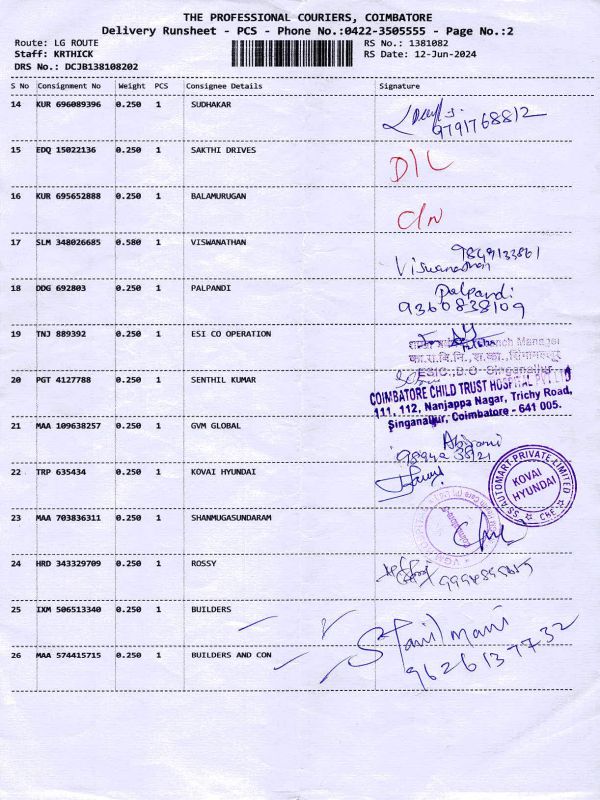 THE PROFESSIONAL COURIERS, COIMBATORE
Delivery Runsheet - PCS - Phone No.:0422-3505555 - Page No.:2
Route: LG ROUTE RS No.: 1381082
Staff: KRTHICK RS Date: 12-Jun-2024
DRS No.: DCJB138108202
S No Consignment No Weight PCS Consignee Details Signature
14 KUR 696089396 0.250 1 SUDHAKAR
9791768812
15 EDQ 15022136 0.250 1 SAKTHI DRIVES D/L
16 KUR 695652888 0.250 1 BALAMURUGAN
17 SLM 348026685 0.580 1 VISWANATHAN
Viswanathan
18 DDG 692803 0.250 1 PALPANDI Palpandi
9360838109
19 TNJ 889392 0.250 1 ESI CO OPERATION
Branch Manager
ESIC, B.O Singanallur
20 PGT 4127788 0.250 1 SENTHIL KUMAR
COIMBATORE CHILD TRUST HOSPITAL PVT LTD
111, 112, Nanjappa Nagar, Trichy Road,
Singanallur, Coimbatore - 641 005.
21 MAA 109638257 0.250 1 GVM GLOBAL
22 TRP 635434 0.250 1 KOVAI HYUNDAI
SS AUTOMART PRIVATE LIMITED
KOVAI
HYUNDAI
23 MAA 703836311 0.250 1 SHANMUGASUNDARAM
24 HRD 343329709 0.250 1 ROSSY
25 IXM 506513340 0.250 1 BUILDERS
26 MAA 574415715 0.250 1 BUILDERS AND CON
Tamil mani
9626137732